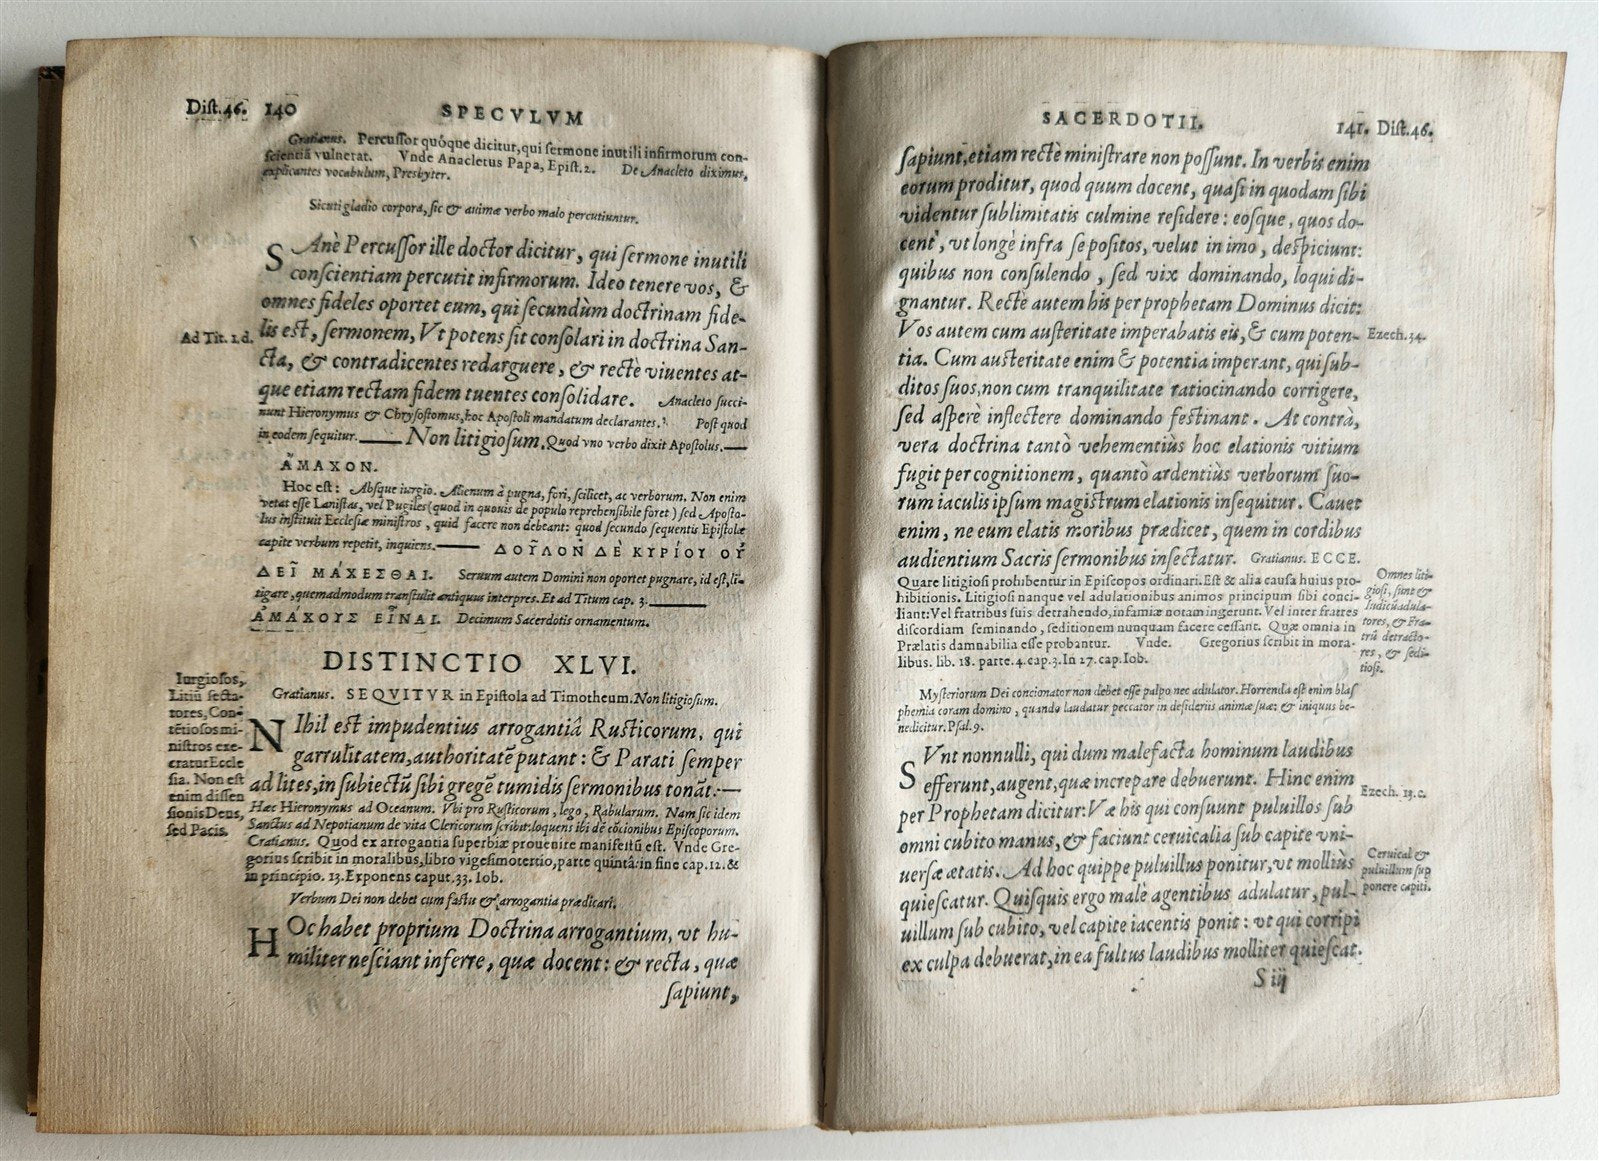 Dist.46. 140 SPECVLVM
Gratianus. Percussor quóque dicitur, qui sermone inutili infirmorum con-
scientiā vulnerat. Vnde Anacletus Papa, Epist. 2. De Anacleto diximus,
explicantes vocabulum, Presbyter.
Sicuti gladio corpora, sic & animæ verbo malo percutiuntur.
SAnè Percussor ille doctor dicitur, qui sermone inutili
conscientiam percutit infirmorum. Ideo tenere vos, &
omnes fideles oportet eum, qui secundùm doctrinam fide-
Ad Tit. 1.d. lis est, sermonem, Vt potens sit consolari in doctrina San-
cta, & contradicentes redarguere, & rectè viuentes at-
que etiam rectam fidem tuentes consolidare. Anacleto succi-
nunt Hieronymus & Chrysostomus, hoc Apostoli mandatum declarantes. Post quod
in eodem sequitur.—— Non litigiosum. Quod vno verbo dixit Apostolus.——
ἌΜΑΧΟΝ.
Hoc est: Absque iurgio. Alienum à pugna, fori, scilicet, ac verborum. Non enim
vetat esse Lanistas, vel Pugiles (quod in quouis de populo reprehensibile foret) sed Aposto-
lus instituit Ecclesiæ ministros, quid facere non debeant: quod secundo sequentis Epistolæ
capite verbum repetit, inquiens.—— ΔΟΥ͂ΛΟΝ ΔῈ ΚΥΡΊΟΥ ΟΥ̓
ΔΕΙ͂ ΜΆΧΕΣΘΑΙ. Seruum autem Domini non oportet pugnare, id est, li-
tigare, quemadmodum transtulit antiquus interpres. Et ad Titum cap. 3.——
ἈΜΆΧΟΥΣ ΕἾΝΑΙ. Decimum Sacerdotis ornamentum.
DISTINCTIO XLVI.
Iurgiosos,
Litiū secta-
tores, Con-
tētiosos mi-
nistros exe-
cratur Eccle
sia. Non est
enim dissen
sionis Deus,
sed Pacis.
Gratianus. SEQVITVR in Epistola ad Timotheum. Non litigiosum.
NIhil est impudentius arrogantiâ Rusticorum, qui
garrulitatem, authoritatē putant: & Parati semper
ad lites, in subiectū sibi gregē tumidis sermonibus tonāt:—
Hæc Hieronymus ad Oceanum. Vbi pro Rusticorum, lego, Rabularum. Nam sic idem
Sanctus ad Nepotianum de vita Clericorum scribit: loquens ibi de cōcionibus Episcoporum.
Gratianus. Quod ex arrogantia superbiæ prouenire manifestū est. Vnde Gre-
gorius scribit in moralibus, libro vigesimotertio, parte quinta: in fine cap. 12. &
in principio. 13. Exponens caput. 33. Iob.
Verbum Dei non debet cum fastu & arrogantia prædicari.
HOc habet proprium Doctrina arrogantium, vt hu-
militer nesciant inferre, quæ docent: & recta, quæ
sapiunt,
SACERDOTII. 141. Dist.46.
sapiunt, etiam rectè ministrare non possunt. In verbis enim
eorum proditur, quod quum docent, quasi in quodam sibi
videntur sublimitatis culmine residere: eosque, quos do-
cent, vt longè infra se positos, velut in imo, despiciunt:
quibus non consulendo, sed vix dominando, loqui di-
gnantur. Rectè autem his per prophetam Dominus dicit:
Vos autem cum austeritate imperabatis eis, & cum poten- Ezech. 34.
tia. Cum austeritate enim & potentia imperant, qui sub-
ditos suos, non cum tranquilitate ratiocinando corrigere,
sed asperè inflectere dominando festinant. At contrà,
vera doctrina tantò vehementiùs hoc elationis vitium
fugit per cognitionem, quantò ardentiùs verborum suo-
rum iaculis ipsum magistrum elationis insequitur. Cauet
enim, ne eum elatis moribus prædicet, quem in cordibus
audientium Sacris sermonibus insectatur. Gratianus. ECCE.
Quare litigiosi prohibentur in Episcopos ordinari. Est & alia causa huius pro-
hibitionis. Litigiosi nanque vel adulationibus animos principum sibi conci-
liant: Vel fratribus suis detrahendo, infamiæ notam ingerunt. Vel inter fratres
discordiam seminando, seditionem nunquam facere cessant. Quæ omnia in
Prælatis damnabilia esse probantur. Vnde. Gregorius scribit in mora-
libus. lib. 18. parte. 4. cap. 3. In 27. cap. Iob.
Omnes liti-
giosi, sunt &
adula-
tores, & Fra-
trū detracto-
res, & sedi-
tiosi.
Mysteriorum Dei concionator non debet esse palpo nec adulator. Horrenda est enim blas
phemia coram domino, quando laudatur peccator in desideriis animæ suæ: & iniquus be-
nedicitur. Psal. 9.
SVnt nonnulli, qui dum malefacta hominum laudibus
efferunt, augent, quæ increpare debuerunt. Hinc enim
per Prophetam dicitur: Væ his qui consuunt puluillos sub Ezech. 13. c.
omni cubito manus, & faciunt ceruicalia sub capite vni-
uersæ ætatis. Ad hoc quippe puluillus ponitur, vt molliùs
quiescatur. Quisquis ergo malè agentibus adulatur, pul-
uillum sub cubito, vel capite iacentis ponit: vt qui corripi
ex culpa debuerat, in ea fultus laudibus molliter quiescat.
Ceruical &
puluillum sup
ponere capiti.
S iij